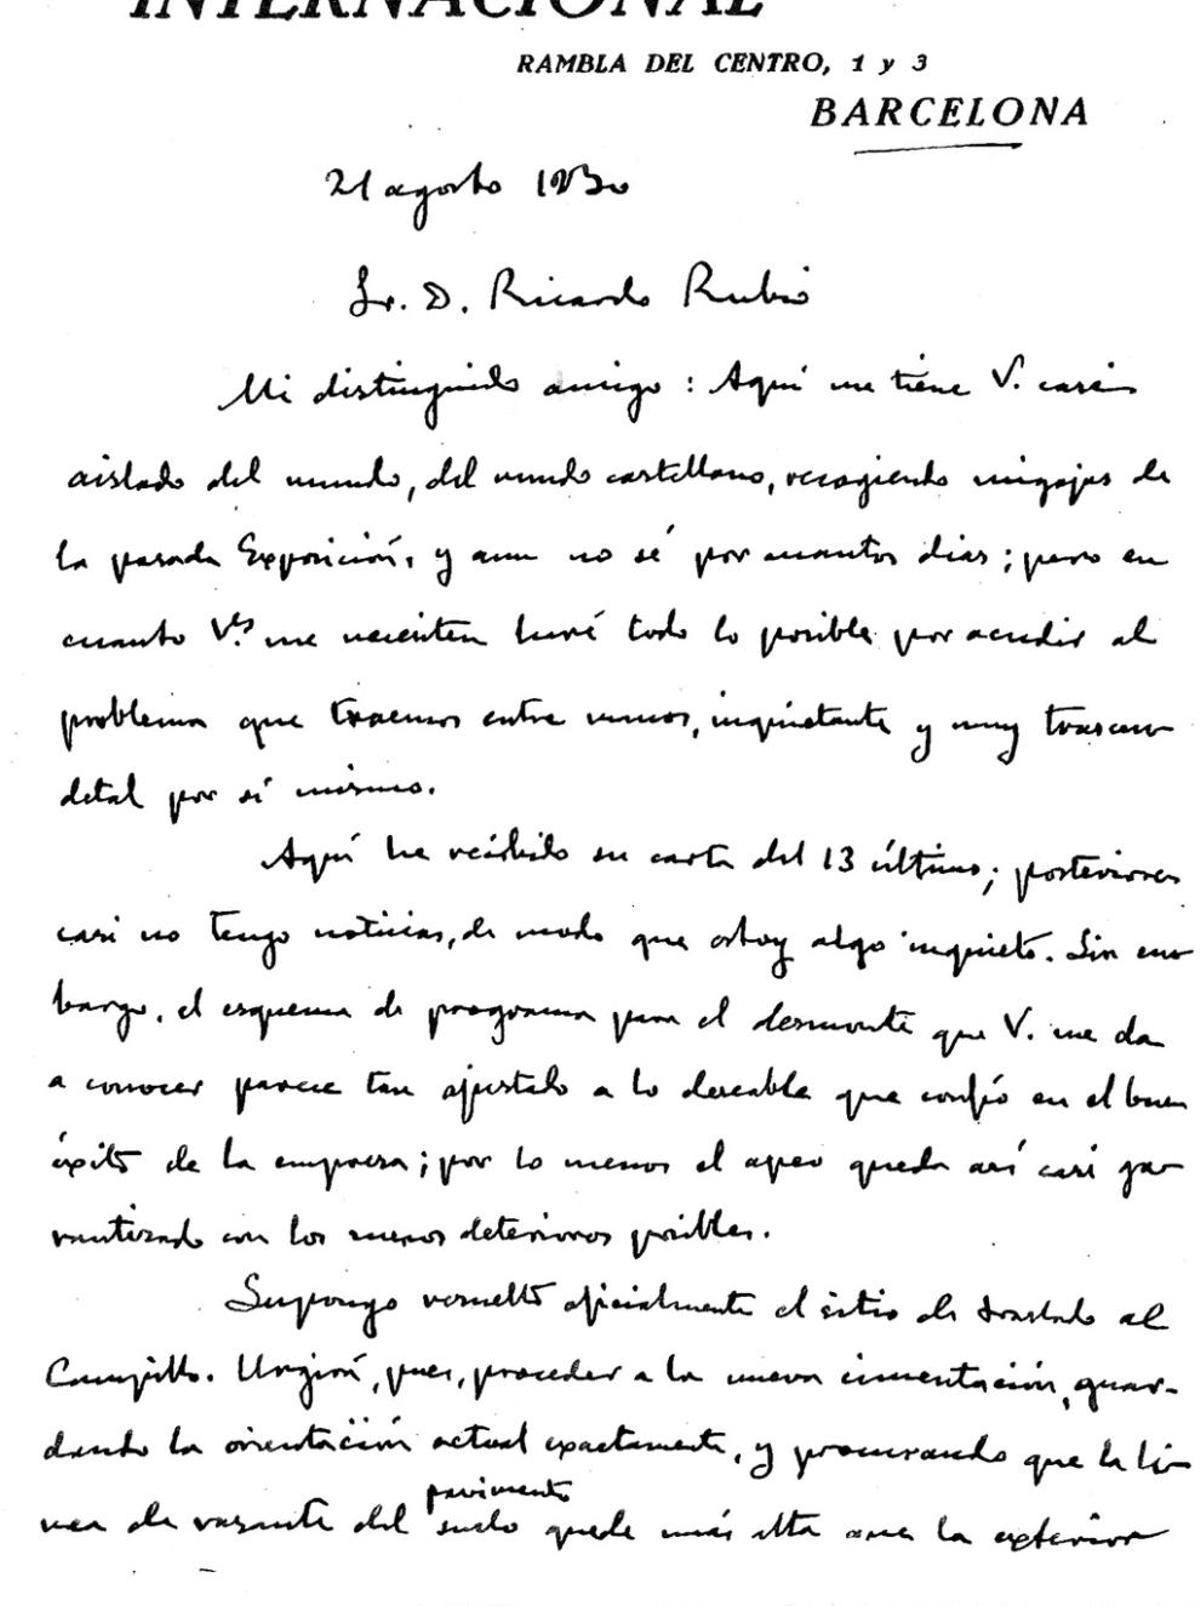 INTERNACIONAL
RAMBLA DEL CENTRO, 1 y 3
BARCELONA
21 agosto 1930
Sr. D. Ricardo Rubio
Mi distinguido amigo: Aquí me tiene V. casi
aislado del mundo, del mundo castellano, recogiendo migajas de
la pasada Exposición, y aun no sé por cuantos dias; pero en
cuanto Vds. me necesiten haré todo lo posible por acudir al
problema que traemos entre manos, inquietante y muy trascen
detal por sí mismo.
Aquí he recibido su carta del 13 último; posteriores
casi no tengo noticias, de modo que estoy algo inquieto. Sin em
bargo, el esquema de programa para el desmonte que V. me da
a conocer parece tan ajustado a lo deseable que confío en el buen
éxito de la empresa; por lo menos el apeo queda así casi ga
rantizado con los menos deterioros posibles.
Supongo resuelto oficialmente el sitio de traslado al
Campillo. Urgirá, pues, proceder a la nueva cimentación, guar-
dando la orientación actual exactamente, y procurando que la lí
nea de rasante del pavimento
suelo quede más alta que la exterior